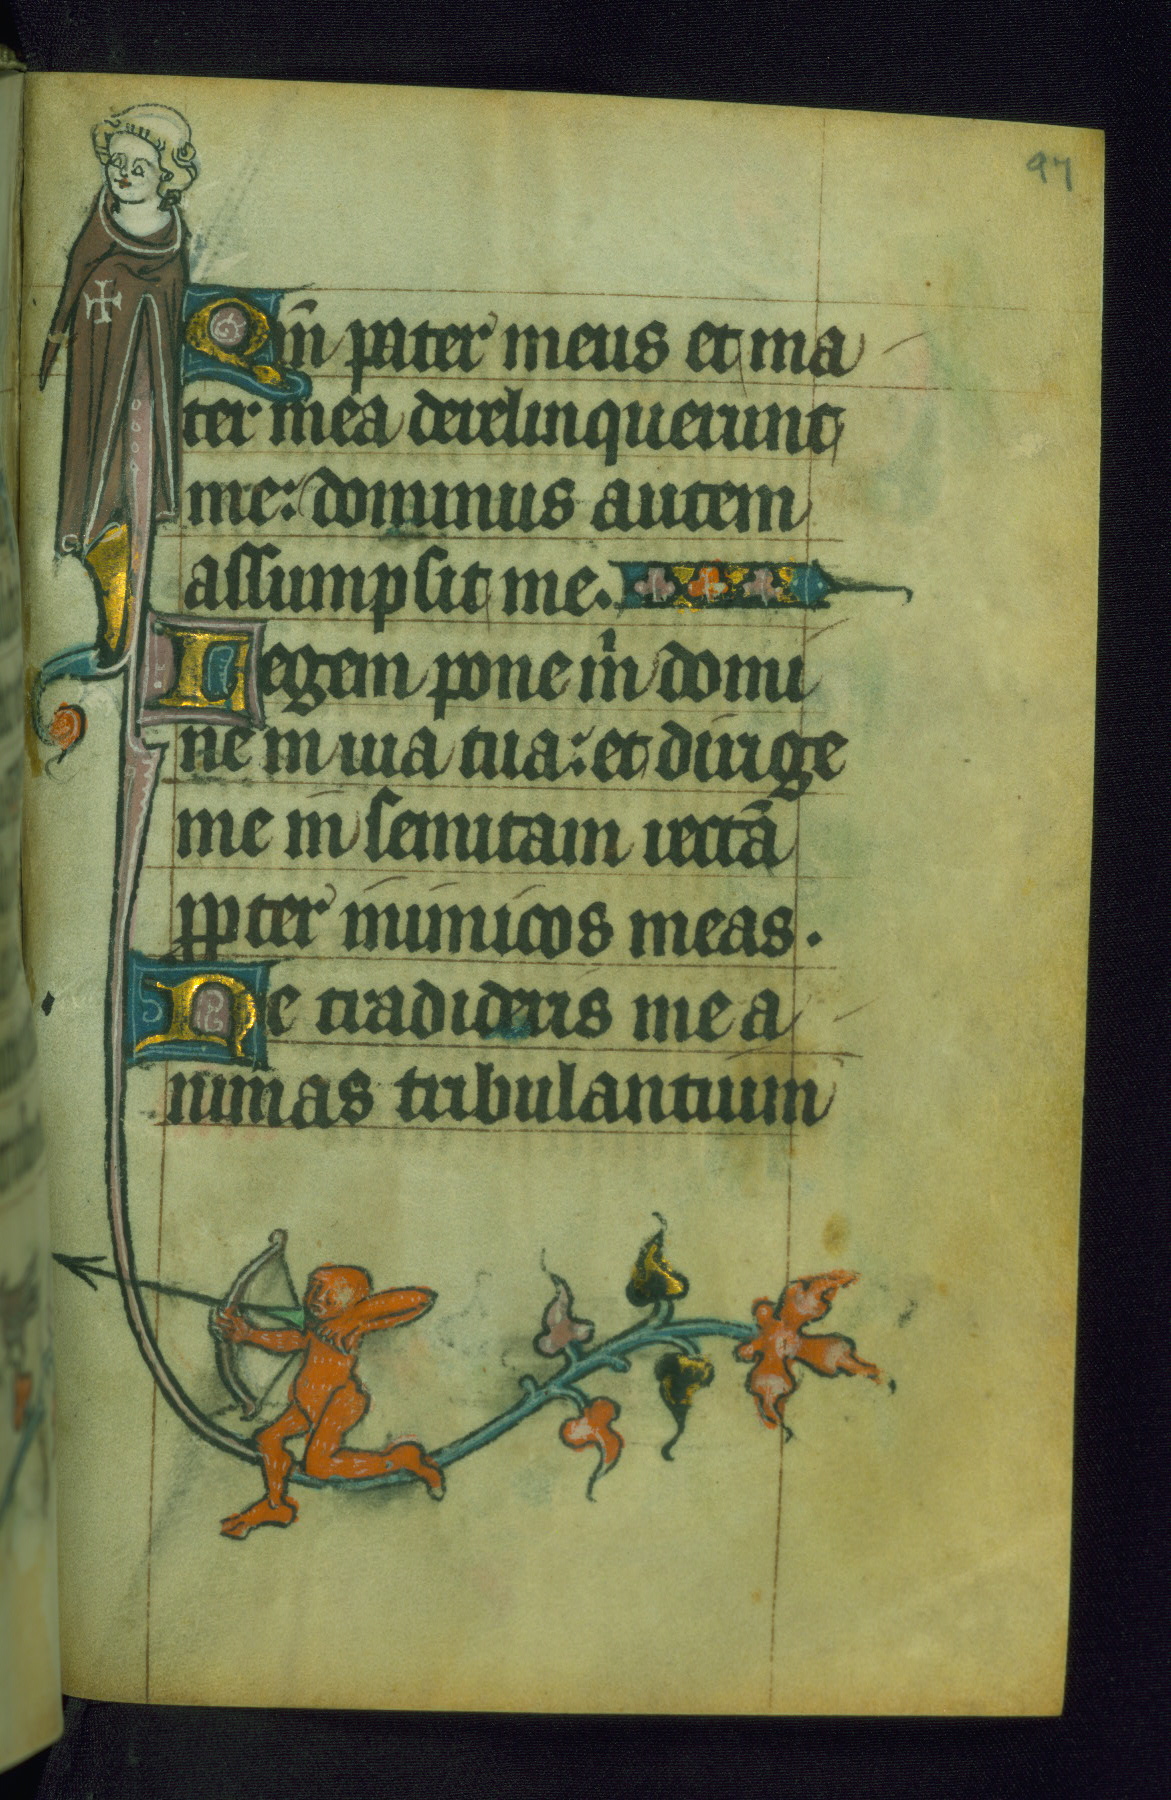 97
Qm̄ pater meus et ma
ter mea derelinquerunt
me: dominus autem
assumpsit me.
Legem pone m̄ domi
ne in uia tua: et dirige
me in semitam rectā
ꝓpter inimicos meas.
Ne tradideris me a
nimas tribulantium